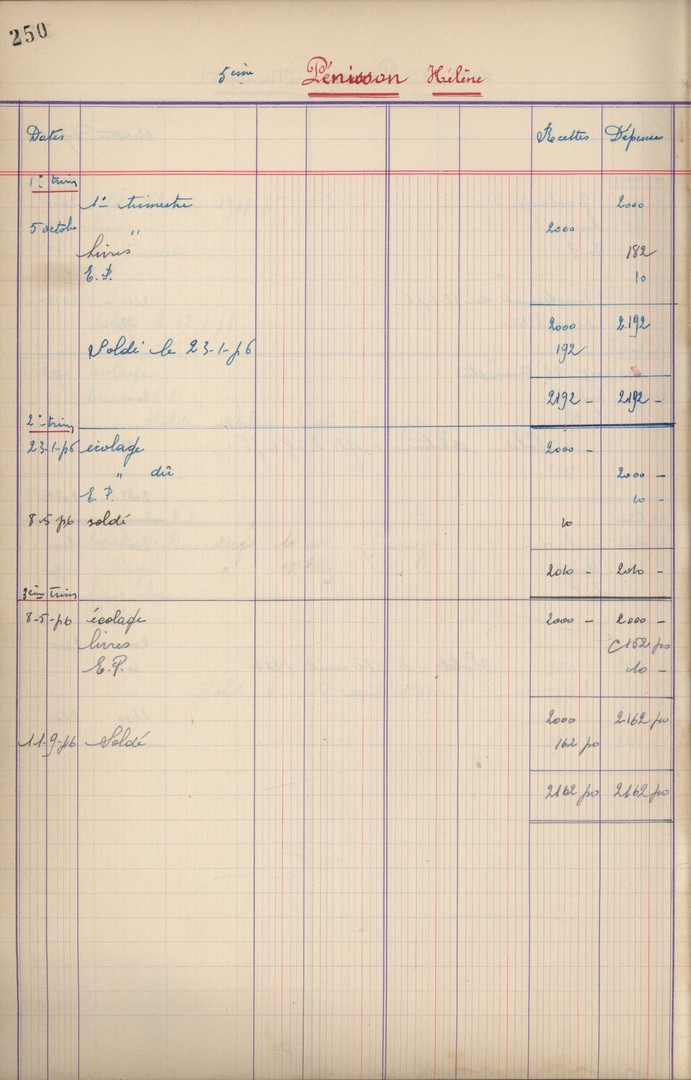 250
5ème Pénisson Hélène
Dates Recettes Dépenses
1er trim
1er trimestre 2000
5 octobre " 2000
Livres 182
E.P. 10
2000 2.192
Soldé le 23-1-56 192
2192 - 2192 -
2e trim
23-1-56 écolage 2000 -
" dû 2000 -
E.P. 10 -
8-5-56 soldé 10
2010 - 2010 -
3ème Trim
8-5-56 écolage 2000 - 2000 -
livres 152 50
E.P. 10 -
2000 2.162 50
11-9-56 Soldé 162 50
2162 50 2162 50